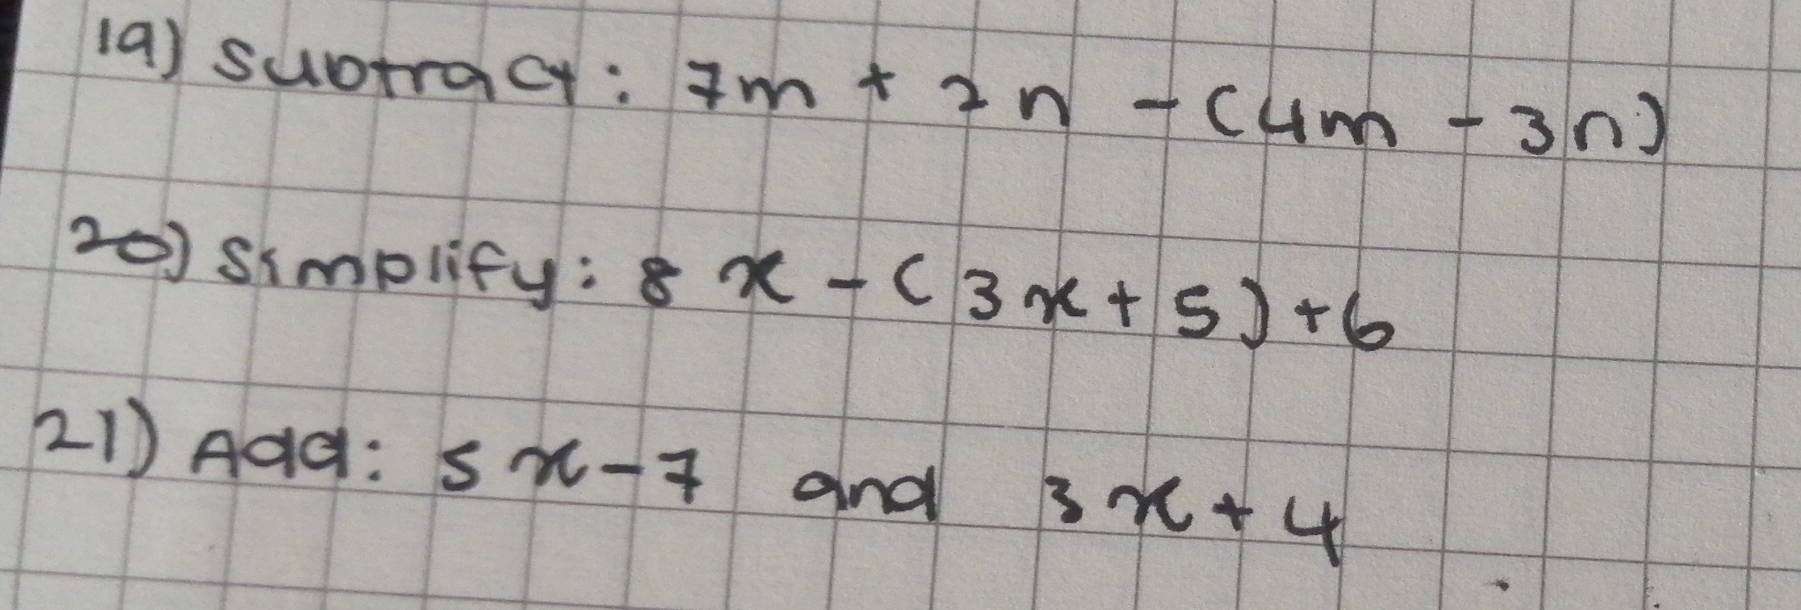 19) Subtract: 7m + 2n - (4m - 3n)
20) Simplify: 8x - (3x + 5) + 6
21) Add: 5x - 7 and 3x + 4